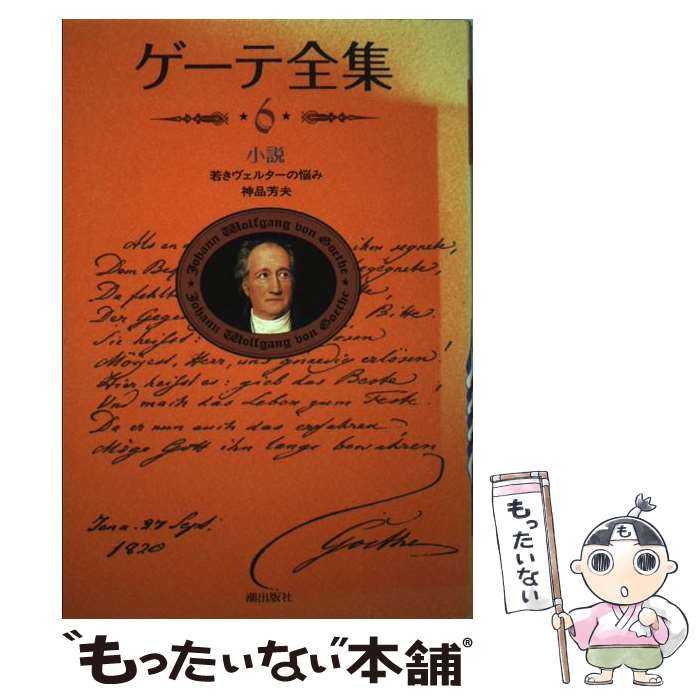 ゲーテ全集
6
小説
若きヴェルターの悩み
神品芳夫
Johann Wolfgang von Goethe
Johann Wolfgang von Goethe
Als an ihm segnete,
Dem gegnete,
Da fehlt
Der Gegen Bitte.
Sie heißt:
Möget, Herr, uns gnaedig erlösen!
Hier heißt es: gieb das Beste
Und mach das Leben zum Feste.
Da er nun auch das erfahren
Möge Gott ihn lange bewahren
Jena. 27 Sept.
1820
Goethe
潮出版社
もったいない
も
"もったいない"本舗®